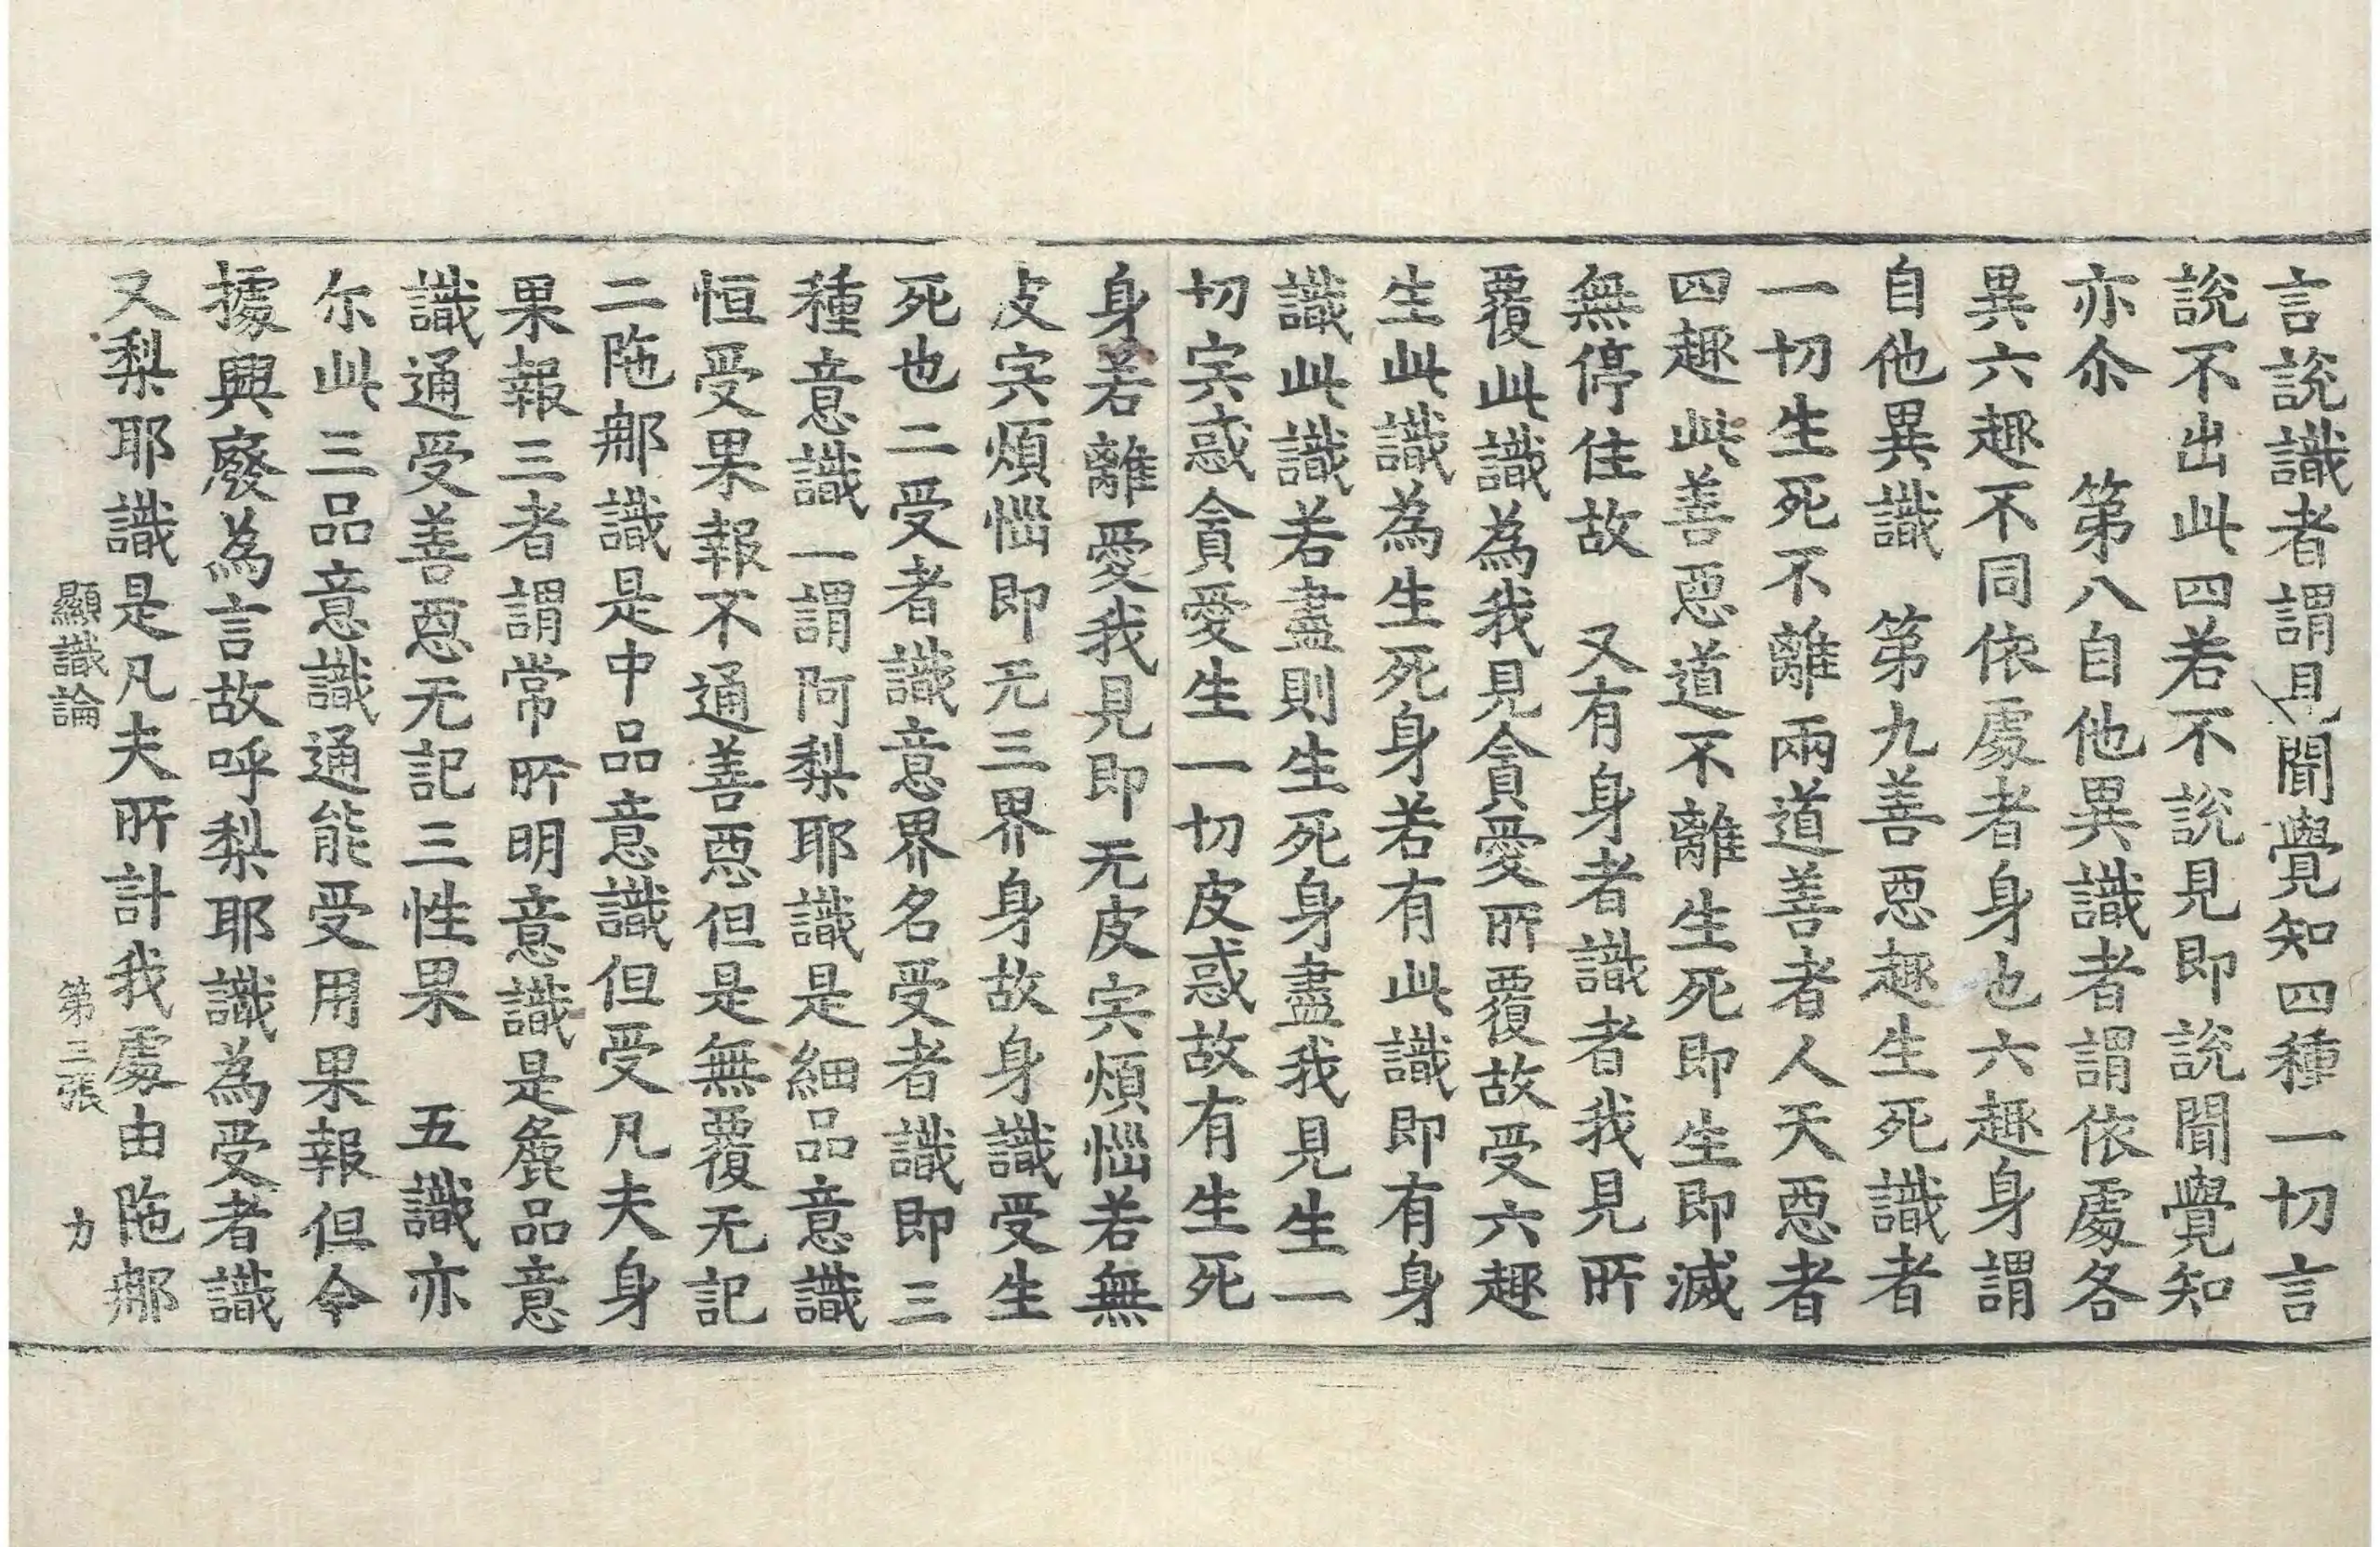 言說識者謂見聞覺知四種一切言
說不出此四若不說見即說聞覺知
亦尒　第八自他異識者謂依處各
異六趣不同依處者身也六趣身謂
自他異識　第九善惡趣生死識者
一切生死不離兩道善者人天惡者
四趣此善惡道不離生死即生即滅
無停住故　又有身者識者我見所
覆此識為我見貪愛所覆故受六趣
生此識為生死身若有此識即有身
識此識若盡則生死身盡我見生一
切宍惑貪愛生一切皮惑故有生死
身若離愛我見即无皮宍煩惱若無
皮宍煩惱即无三界身故身識受生
死也二受者識意界名受者識即三
種意識　一謂阿梨耶識是細品意識
恒受果報不通善惡但是無覆无記
二陁那識是中品意識但受凡夫身
果報三者謂常所明意識是麁品意
識通受善惡无記三性果　五識亦
尔此三品意識通能受用果報但今
據興廢為言故呼梨耶識為受者識
又梨耶識是凡夫所計我處由陁那
顯識論　第三張　力